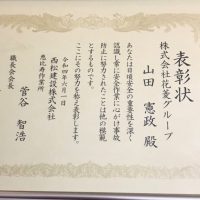 表彰状
株式会社花菱グループ
山田 憲政 殿
あなたは日頃安全の重要性を深く
認識し常に安全作業に心がけ事故
防止に努力されたことは他の模範
とするものです
ここにその努力を称え表彰します。
令和四年六月一日
西松建設株式会社
恵比寿作業所
職長会会長
菅谷 智浩